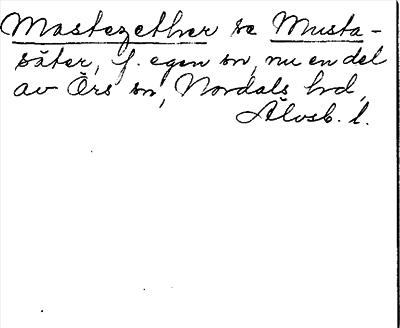 Mastezether se Musta-
säter, f. egen sn, nu en del
av Örs sn, Nordals hd,
Älvsb. l.